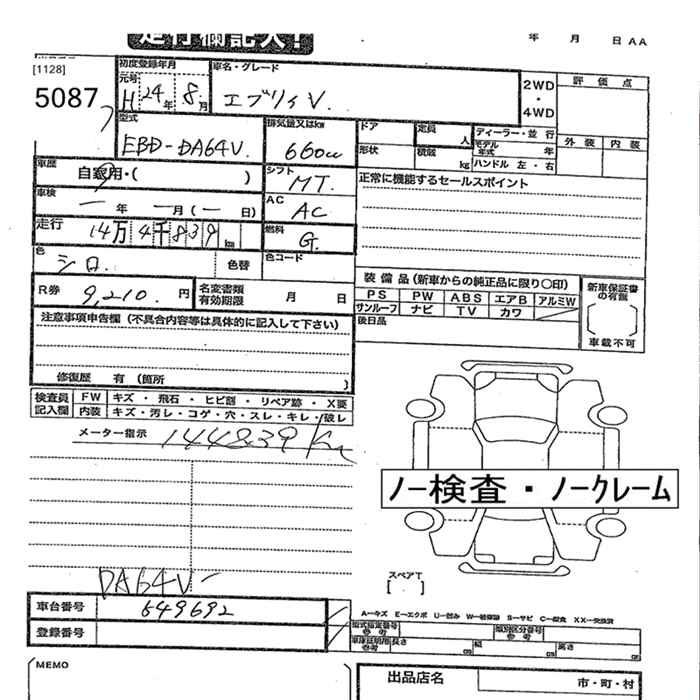 走行欄記入!
年 月 日 AA
[1128]
5087
初度登録年月
元号
H 24年 8月
車名・グレード
エブリィV.
2WD
・
4WD
評価点
外装 内装
型式
EBD-DA64V.
排気量又はkw
660cc
ドア
形状
定員 人
積載 kg
ディーラー・並行
モデル年式 年
ハンドル 左・右
車歴
自家用・( )
シフト
MT.
正常に機能するセールスポイント
車検
年 月(日)
AC
AC
走行
14万4千839km
燃料
G.
色
シロ. 色替
色コード
R券 9,210. 円
名変書類
有効期限 月 日
装備品(新車からの純正品に限り〇印)
PS PW ABS エアB アルミW
サンルーフ ナビ TV カワ
後日品
新車保証書
の有無
車載不可
注意事項申告欄(不具合内容等は具体的に記入して下さい)
修復歴 有(箇所 )
検査員
記入欄
FW キズ・飛石・ヒビ割・リペア跡・X要
内装 キズ・汚レ・コゲ・穴・スレ・キレ・破レ
メーター指示 144839Km
ノー検査・ノークレーム
スペアT
[ . ]
DA64V-
車台番号 649692
登録番号
A-キズ E-エクボ U-凹ミ W-補修跡 S-サビ C-腐食 XX-交換済
型式指定番号
参考
類別区分番号
参考
車庫証明用
参考
長さ cm 幅 cm 高さ cm
MEMO
出品店名
市・町・村